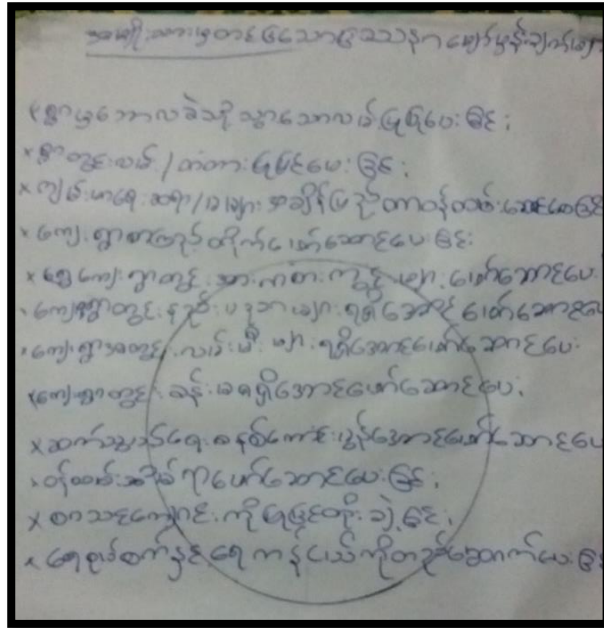 အမျိုးသားမှတင်ပြသော ဒေသန္တရ မျှော်မှန်းချက်များ
x ရွာမှဘောလခဲသို့သွားသောလမ်းပြုပြင်ပေးခြင်း
x ရွာတွင်းလမ်း/တံတားပြုပြင်ပေးခြင်း
x ကျမ်းမာရေးဆရာ/ဆရာမများအချိန်ပြည့်တာဝန်ထမ်းဆောင်စေခြင်း
x ကျေးရွာစာကြည့်တိုက်ဖော်ဆောင်ပေးခြင်း
x ကျေးရွာတွင်းအားကစားကွင်းများဖော်ဆောင်ပေး
ကျေးရွာတွင်းနည်းပညာများရရှိအောင်ဖော်ဆောင်ပေ
ကျေးရွာအတွင်းလမ်းမီးများရရှိအောင်ဖော်ဆောင်ပေး
ကျေးရွာတွင်းခန်းမရရှိအောင်ဖော်ဆောင်ပေး
x ဆက်သွယ်ရေးစနစ်ကောင်းမွန်အောင်ဖော်ဆောင်ပေ
ဝန်ထမ်းအိမ်ရာဖော်ဆောင်ပေးခြင်း
x စာသင်ကျောင်းကိုပြုပြင်တိုးချဲ့ခြင်း
x ရေစုပ်စက်နှင့်ရေကန်ငယ်ကိုတည်ဆောက်ပေးခြင်း